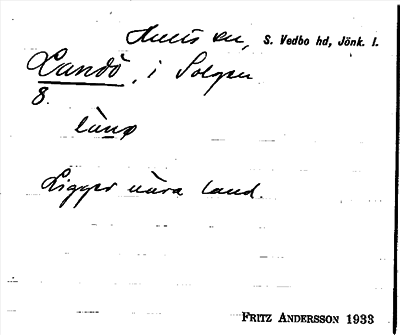 Hults sn, S. Vedbo hd, Jönk. l.
Landö, i Solgen
8.
lànø
Ligger nära land.
FRITZ ANDERSSON 1933